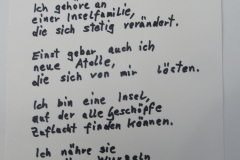 Ich gehöre an
einer Inselfamilie,
die sich stetig verändert.
Einst gebar auch ich
neue Atolle,
die sich von mir lösten.
Ich bin eine Insel,
auf der alle Geschöpfe
Zuflucht finden können.
Ich nähre sie